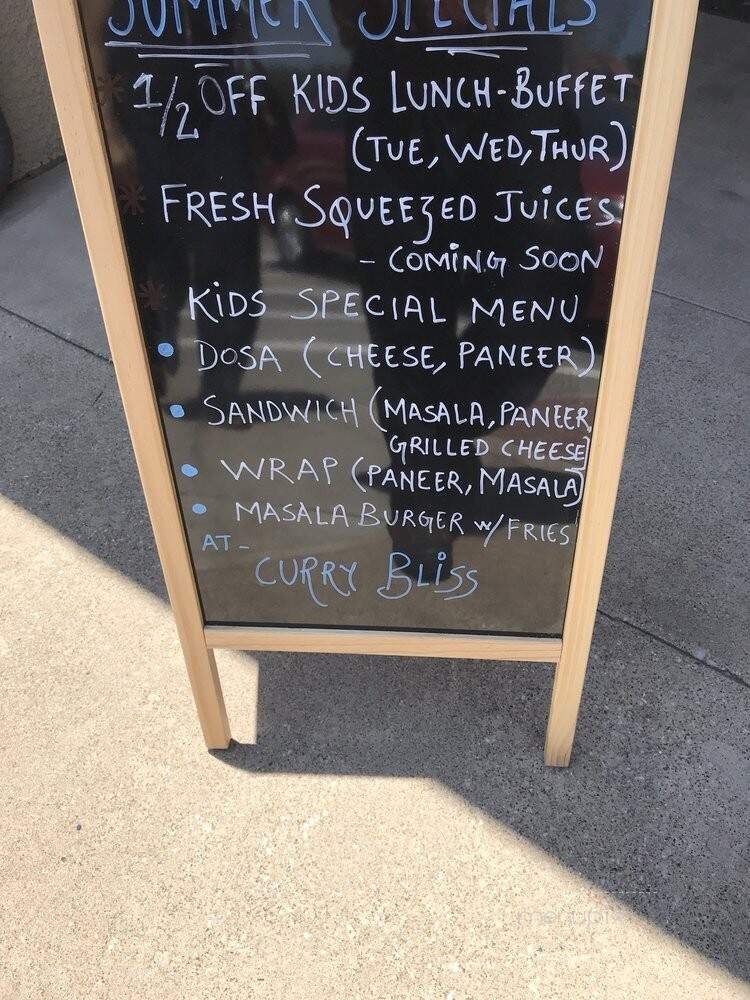 SUMMER SPECIALS
* 1/2 OFF KIDS LUNCH-BUFFET
(TUE, WED, THUR)
* FRESH SQUEEZED JUICES
- COMING SOON
* KIDS SPECIAL MENU
• DOSA (CHEESE, PANEER)
• SANDWICH (MASALA, PANEER,
GRILLED CHEESE)
• WRAP (PANEER, MASALA)
• MASALA BURGER w/ FRIES
AT -
CURRY BLISS